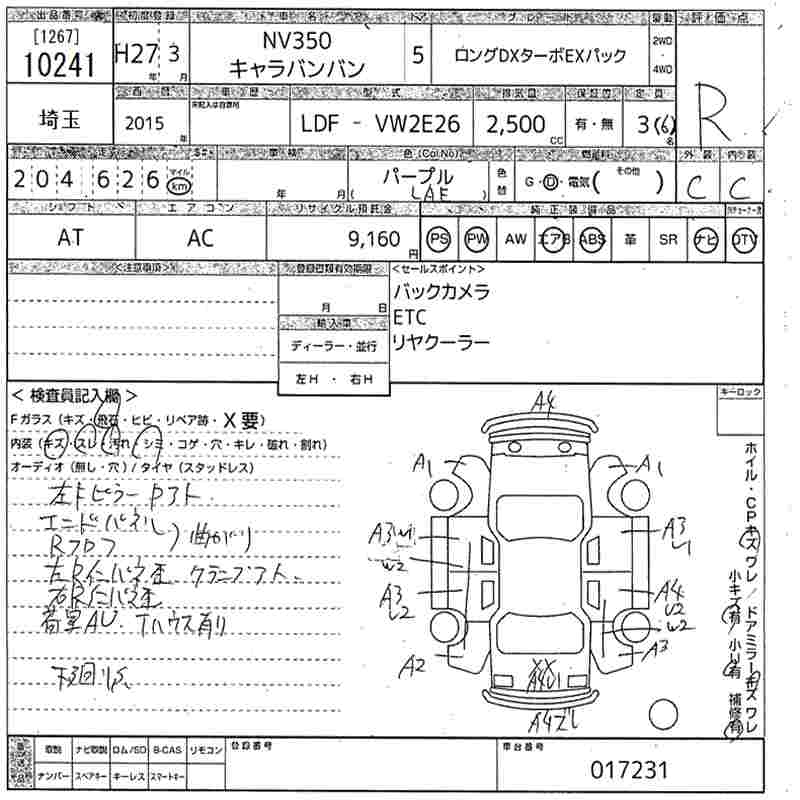 出品番号 初度登録 車名 ドア グレード 駆動 評価点
[1267]
10241
H27年 3月
NV350
キャラバンバン
5
ロングDXターボEXパック
2WD
・
4WD
R
埼玉
西暦 車歴 型式 排気量 保証書 定員
未記入は自家用
2015年
LDF - VW2E26
2,500cc
有・無
3(6)名
走行 車検 色(Col No) 燃料 外装 内装
204626
マイル
km
年 月
パープル
( LAE )
色替
G・D・電気( その他 )
C C
シフト エアコン リサイクル預託金 純正装備品
AT AC 9,160円
PS PW AW エアB ABS 革 SR ナビ DTV
<注意事項> 登録書類有効期限 <セールスポイント>
月 日
輸入車
ディーラー・並行
左H ・ 右H
バックカメラ
ETC
リヤクーラー
キーロック
< 検査員記入欄 >
Fガラス (キズ・飛石・ヒビ・リペア跡・X要)
内装 (キズ・スレ・汚れ・シミ・コゲ・穴・キレ・破れ・割れ)
オーディオ (無し・穴) / タイヤ (スタッドレス)
左Fピラー Pアト
エンドパネル
Rフロア
曲がり
左Rインパネ歪 クランプアト.
右Rインパネ歪
荷室AU. Tハウス有り
下回りS.
A4
A1 A1
A3 U1
W2
A3
U1
A3
U2
A4
U2
W2
A2 A3
XX
A4U1
ホイル・CPキズ ワレ / ドアミラーキズ ワレ
小キズ有 / 小U有 補修有
取説 ナビ取説 ロム/SD B-CAS リモコン
ナンバー スペアキー キーレス スマートキー
登録番号
車台番号
017231